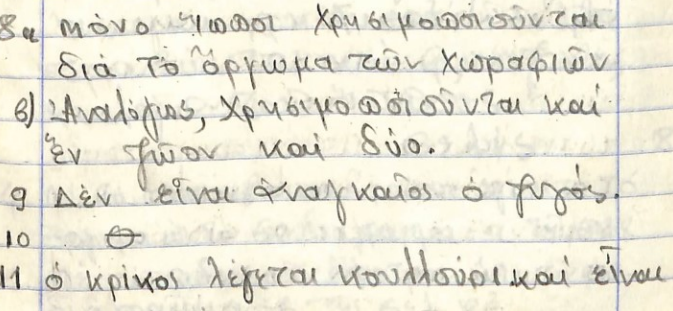 8α μόνο ἵπποι χρησιμοποιοῦνται
διά τό ὄργωμα τῶν χωραφιῶν
β) Ἀναλόγως, χρησιμοποιοῦνται καί
ἕν ζῶον καί δύο.
9 Δέν εἶναι ἀναγκαῖος ὁ ζυγός.
10 Θ
11 ὁ κρίκος λέγεται κουλλούρι καί εἶναι